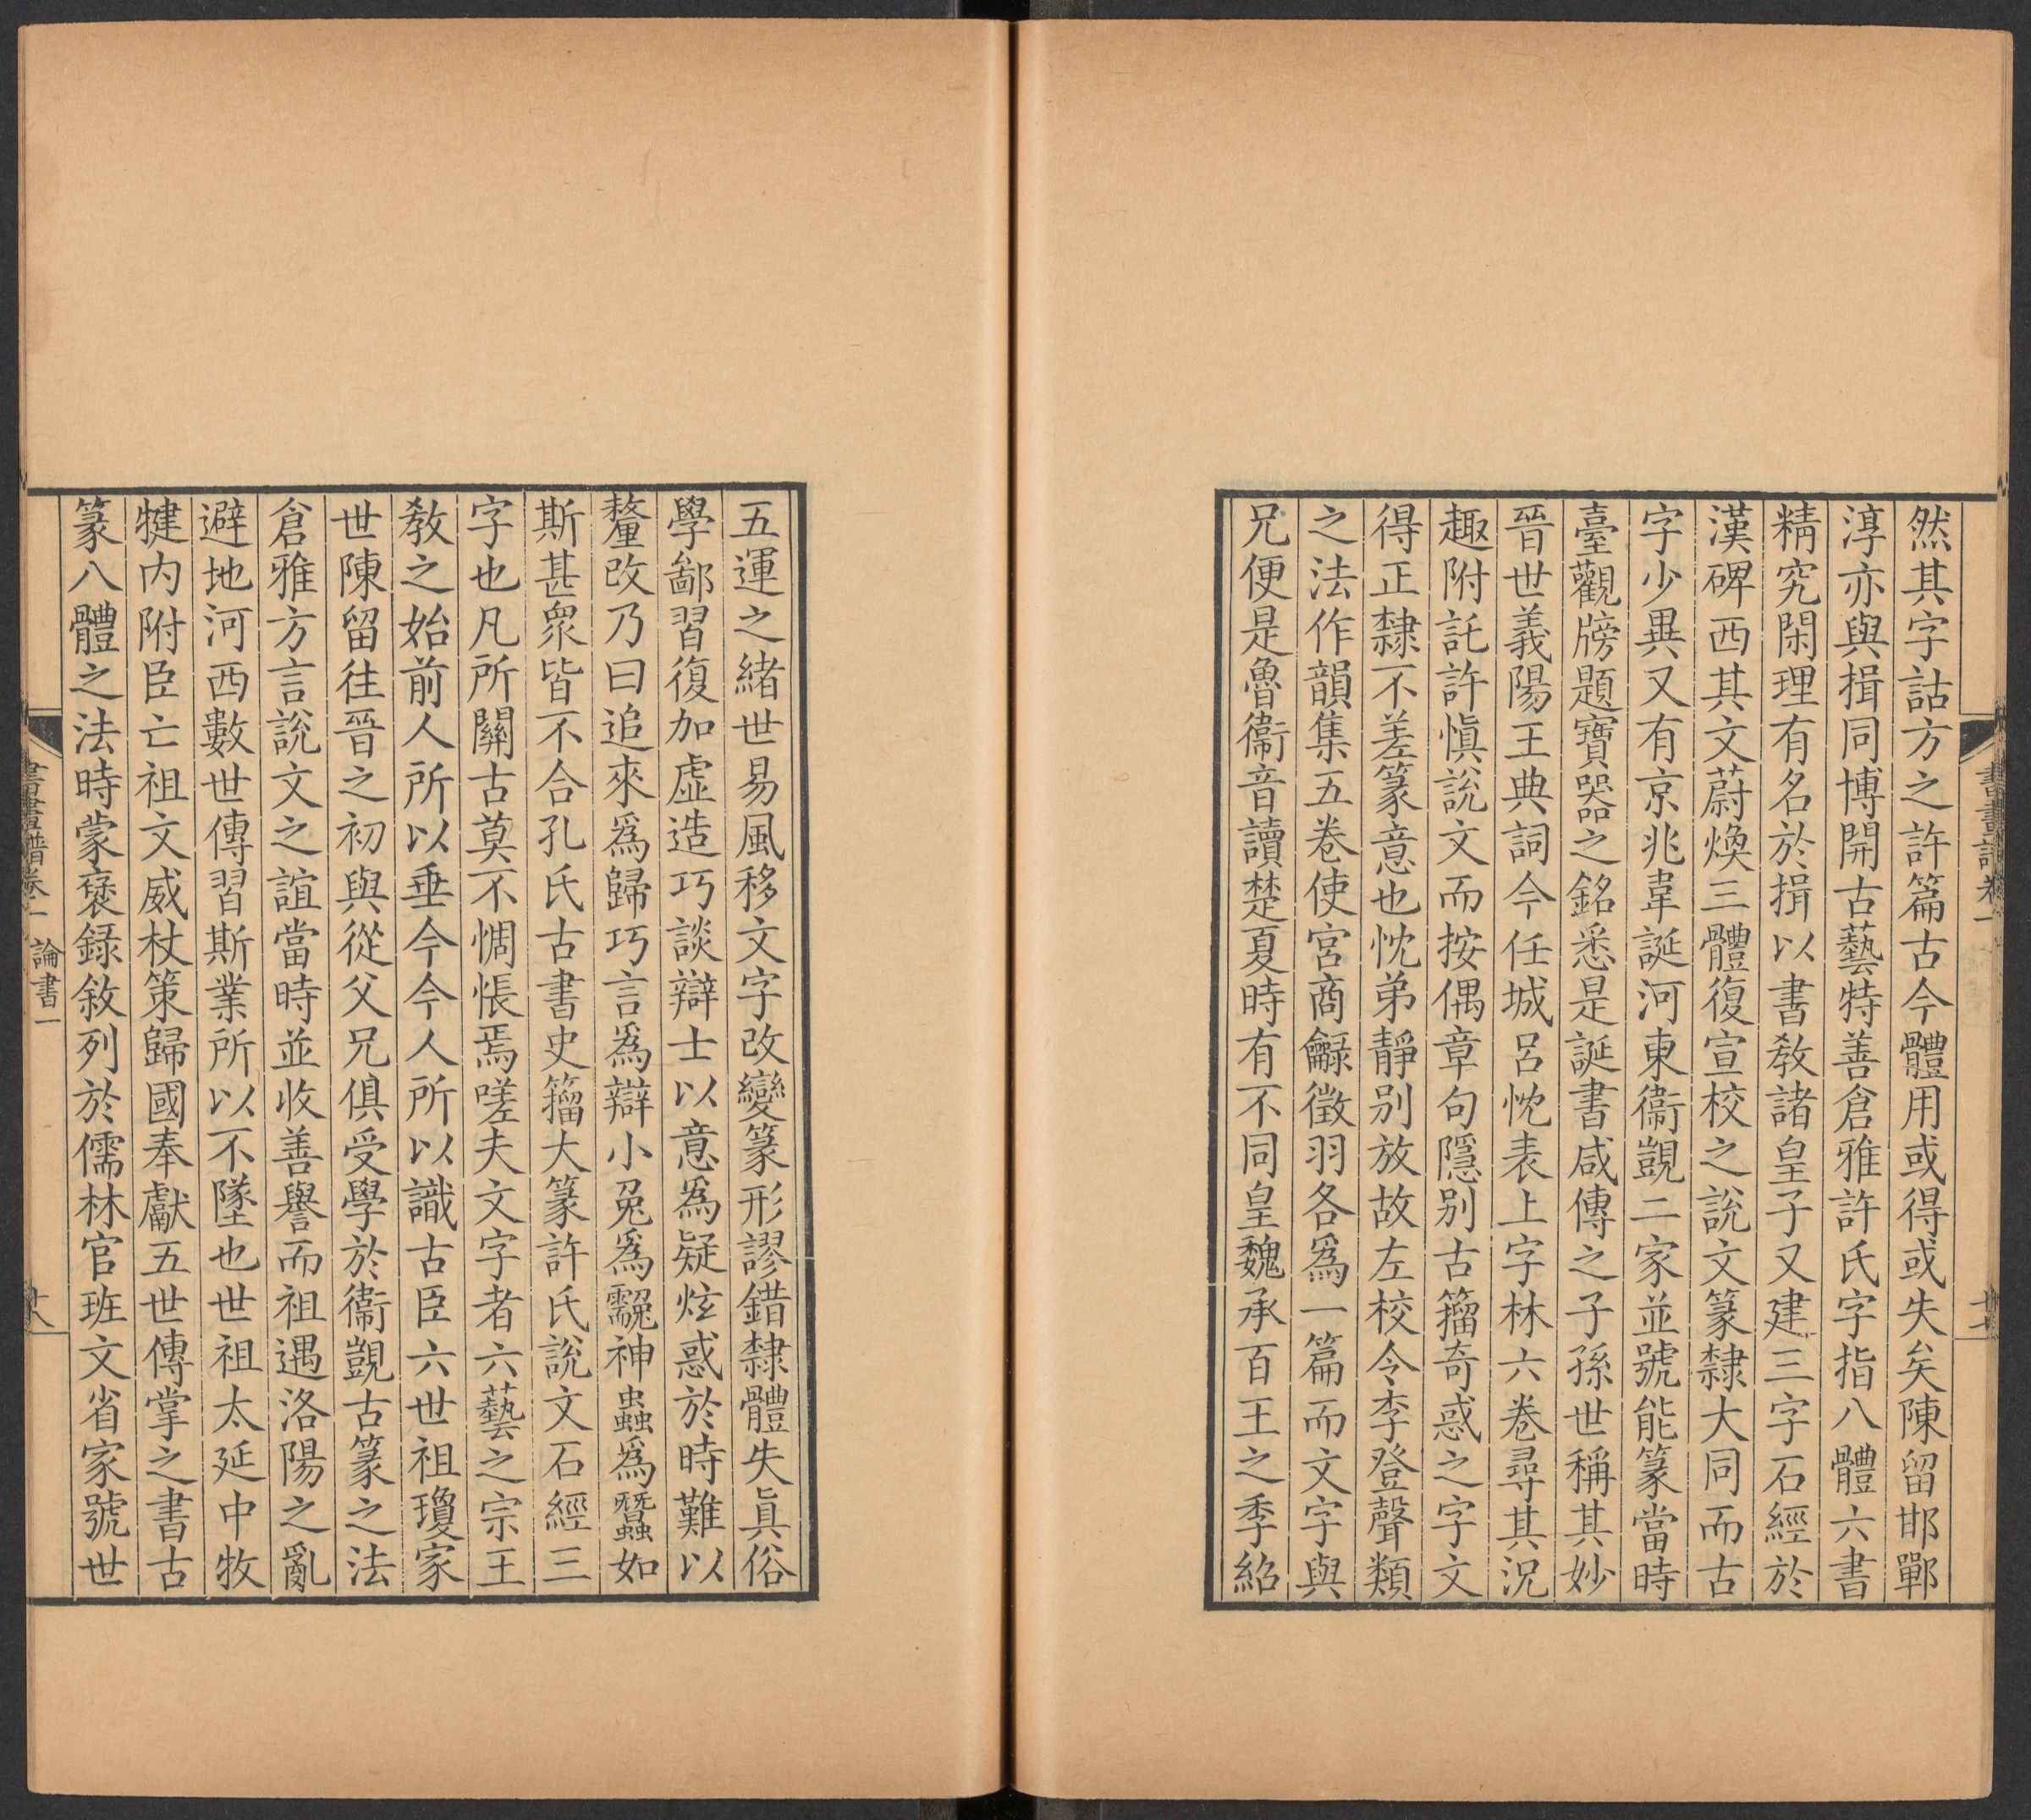 然其字詁方之許篇古今體用或得或失矣陳留邯鄲
淳亦與揖同博開古藝特善倉雅許氏字指八體六書
精究閑理有名於揖以書教諸皇子又建三字石經於
漢碑西其文蔚煥三體復宣校之說文篆隸大同而古
字少異又有京兆韋誕河東衞覬二家並號能篆當時
臺觀牓題寶器之銘悉是誕書咸傳之子孫世稱其妙
晉世義陽王典詞令任城呂忱表上字林六卷尋其況
趣附託許慎說文而按偶章句隱別古籀奇惑之字文
得正隸不差篆意也忱弟靜別放故左校令李登聲類
之法作韻集五卷使宮商龣徵羽各爲一篇而文字與
兄便是魯衞音讀楚夏時有不同皇魏承百王之季紹
五運之緒世易風移文字改變篆形謬錯隸體失眞俗
學鄙習復加虛造巧談辯士以意爲疑炫惑於時難以
釐改乃曰追來爲歸巧言爲辯小兔爲䨲神蟲爲蠶如
斯甚衆皆不合孔氏古書史籀大篆許氏說文石經三
字也凡所關古莫不惆悵焉嗟夫文字者六藝之宗王
教之始前人所以垂今今人所以識古臣六世祖瓊家
世陳留往晉之初與從父兄俱受學於衞覬古篆之法
倉雅方言說文之誼當時並收善譽而祖遇洛陽之亂
避地河西數世傳習斯業所以不墜也世祖太延中牧
犍內附臣亡祖文威杖策歸國奉獻五世傳掌之書古
篆八體之法時蒙襃録敘列於儒林官班文省家號世
書畫譜卷一 論書一